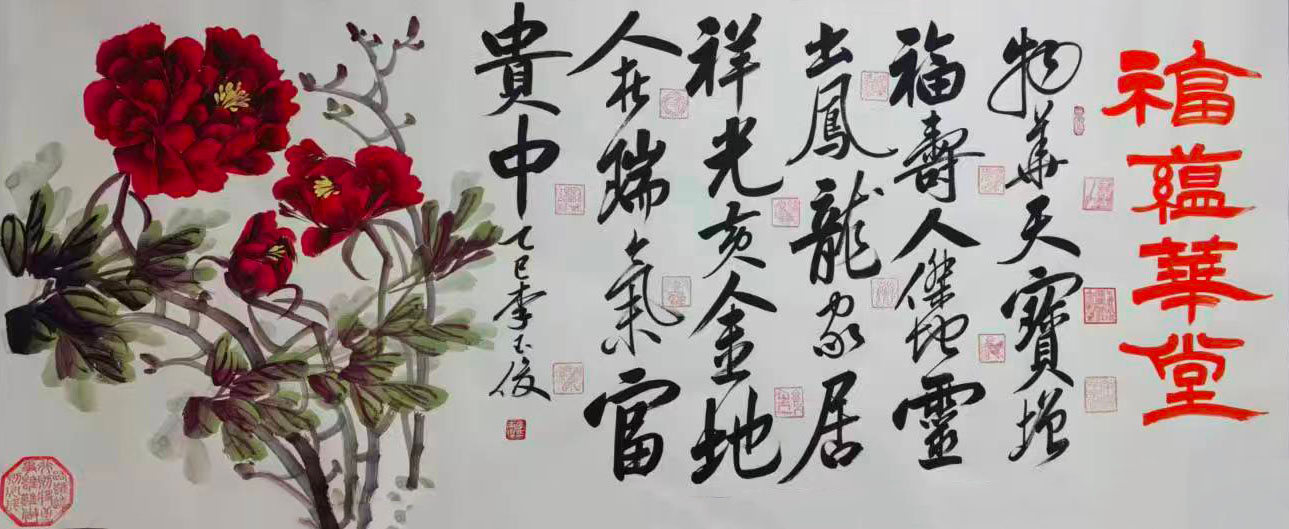 福蘊華堂
物華天寶增
福壽人傑地靈
出鳳龍家居
祥光黃金地
人在瑞氣富
貴中
乙巳李玉俊